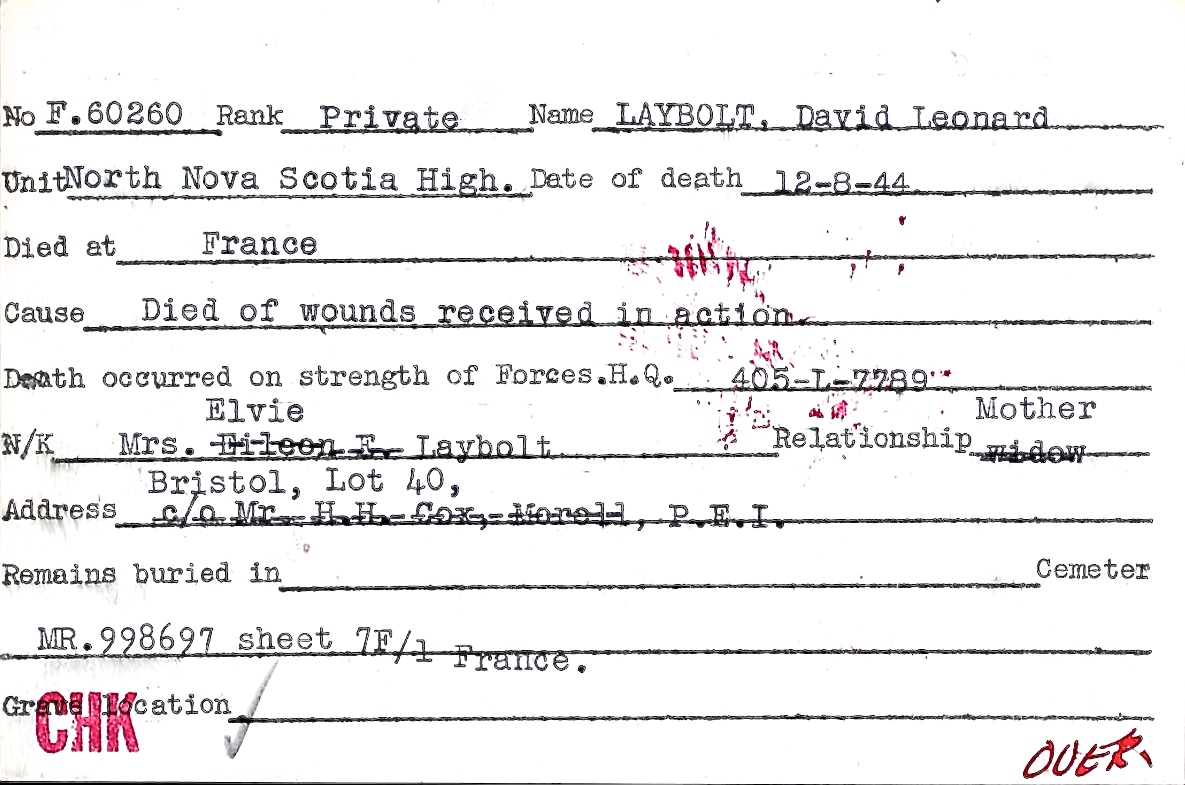 No F.60260 Rank Private Name LAYBOLT, David Leonard
Unit North Nova Scotia High. Date of death 12-8-44
Died at France
Cause Died of wounds received in action.
Death occurred on strength of Forces.H.Q. 405-L-7789
Elvie Mother
N/K Mrs. Eileen F. Laybolt Relationship widow
Bristol, Lot 40,
Address c/o Mr. H.H. Cox, Morell, P.E.I.
Remains buried in Cemeter
MR.998697 sheet 7F/1 France.
Grave location
CHK
OVER.